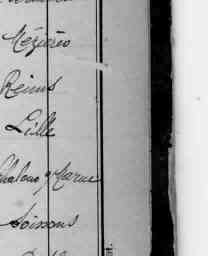 Mézières
Reims
Lille
Chalons s/ Marne
Soissons